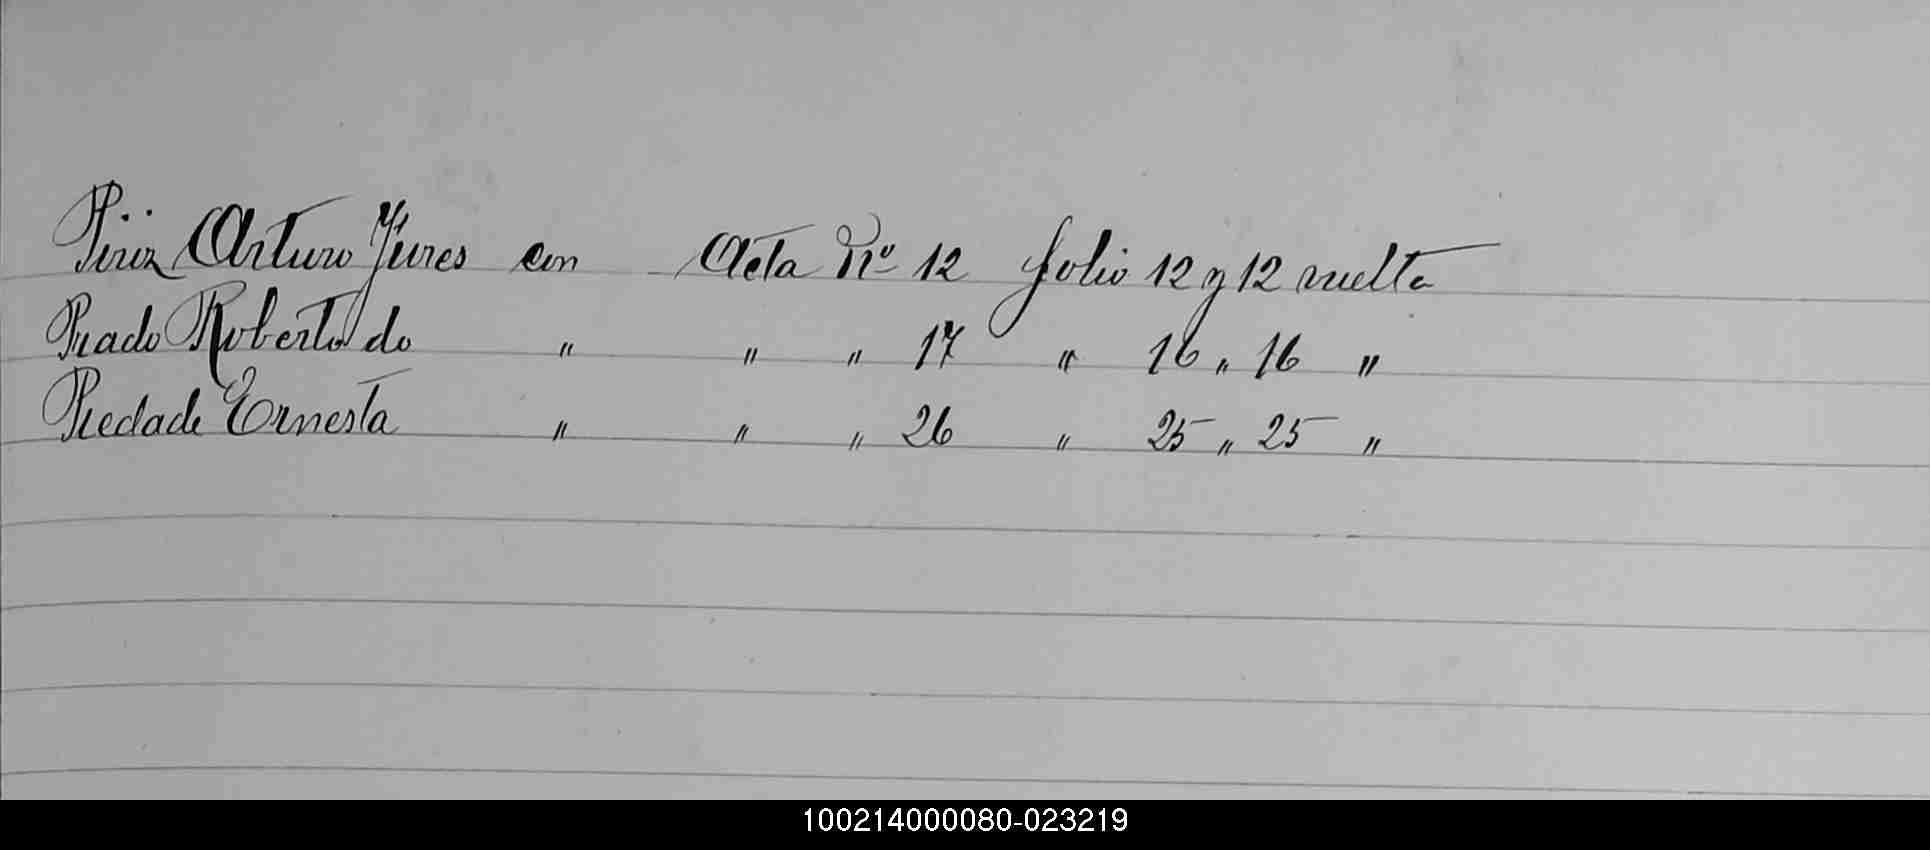 Piriz Arturo Jures en Acta Nº 12 folio 12 y 12 vuelta
Prado Roberto do " " " 17 " 16 " 16 "
Piedade Ernesta " " " 26 " 25 " 25 "
100214000080-023219